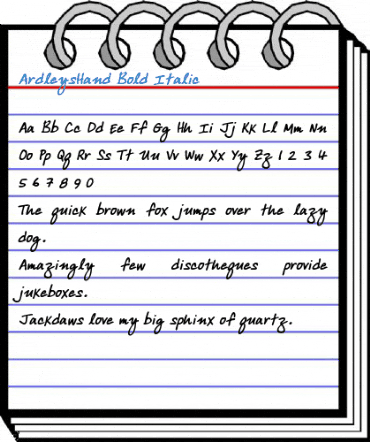 ArdleysHand Bold Italic
Aa Bb Cc Dd Ee Ff Gg Hh Ii Jj Kk Ll Mm Nn
Oo Pp Qq Rr Ss Tt Uu Vv Ww Xx Yy Zz 1 2 3 4
5 6 7 8 9 0
The quick brown fox jumps over the lazy
dog.
Amazingly few discotheques provide
jukeboxes.
Jackdaws love my big sphinx of quartz.